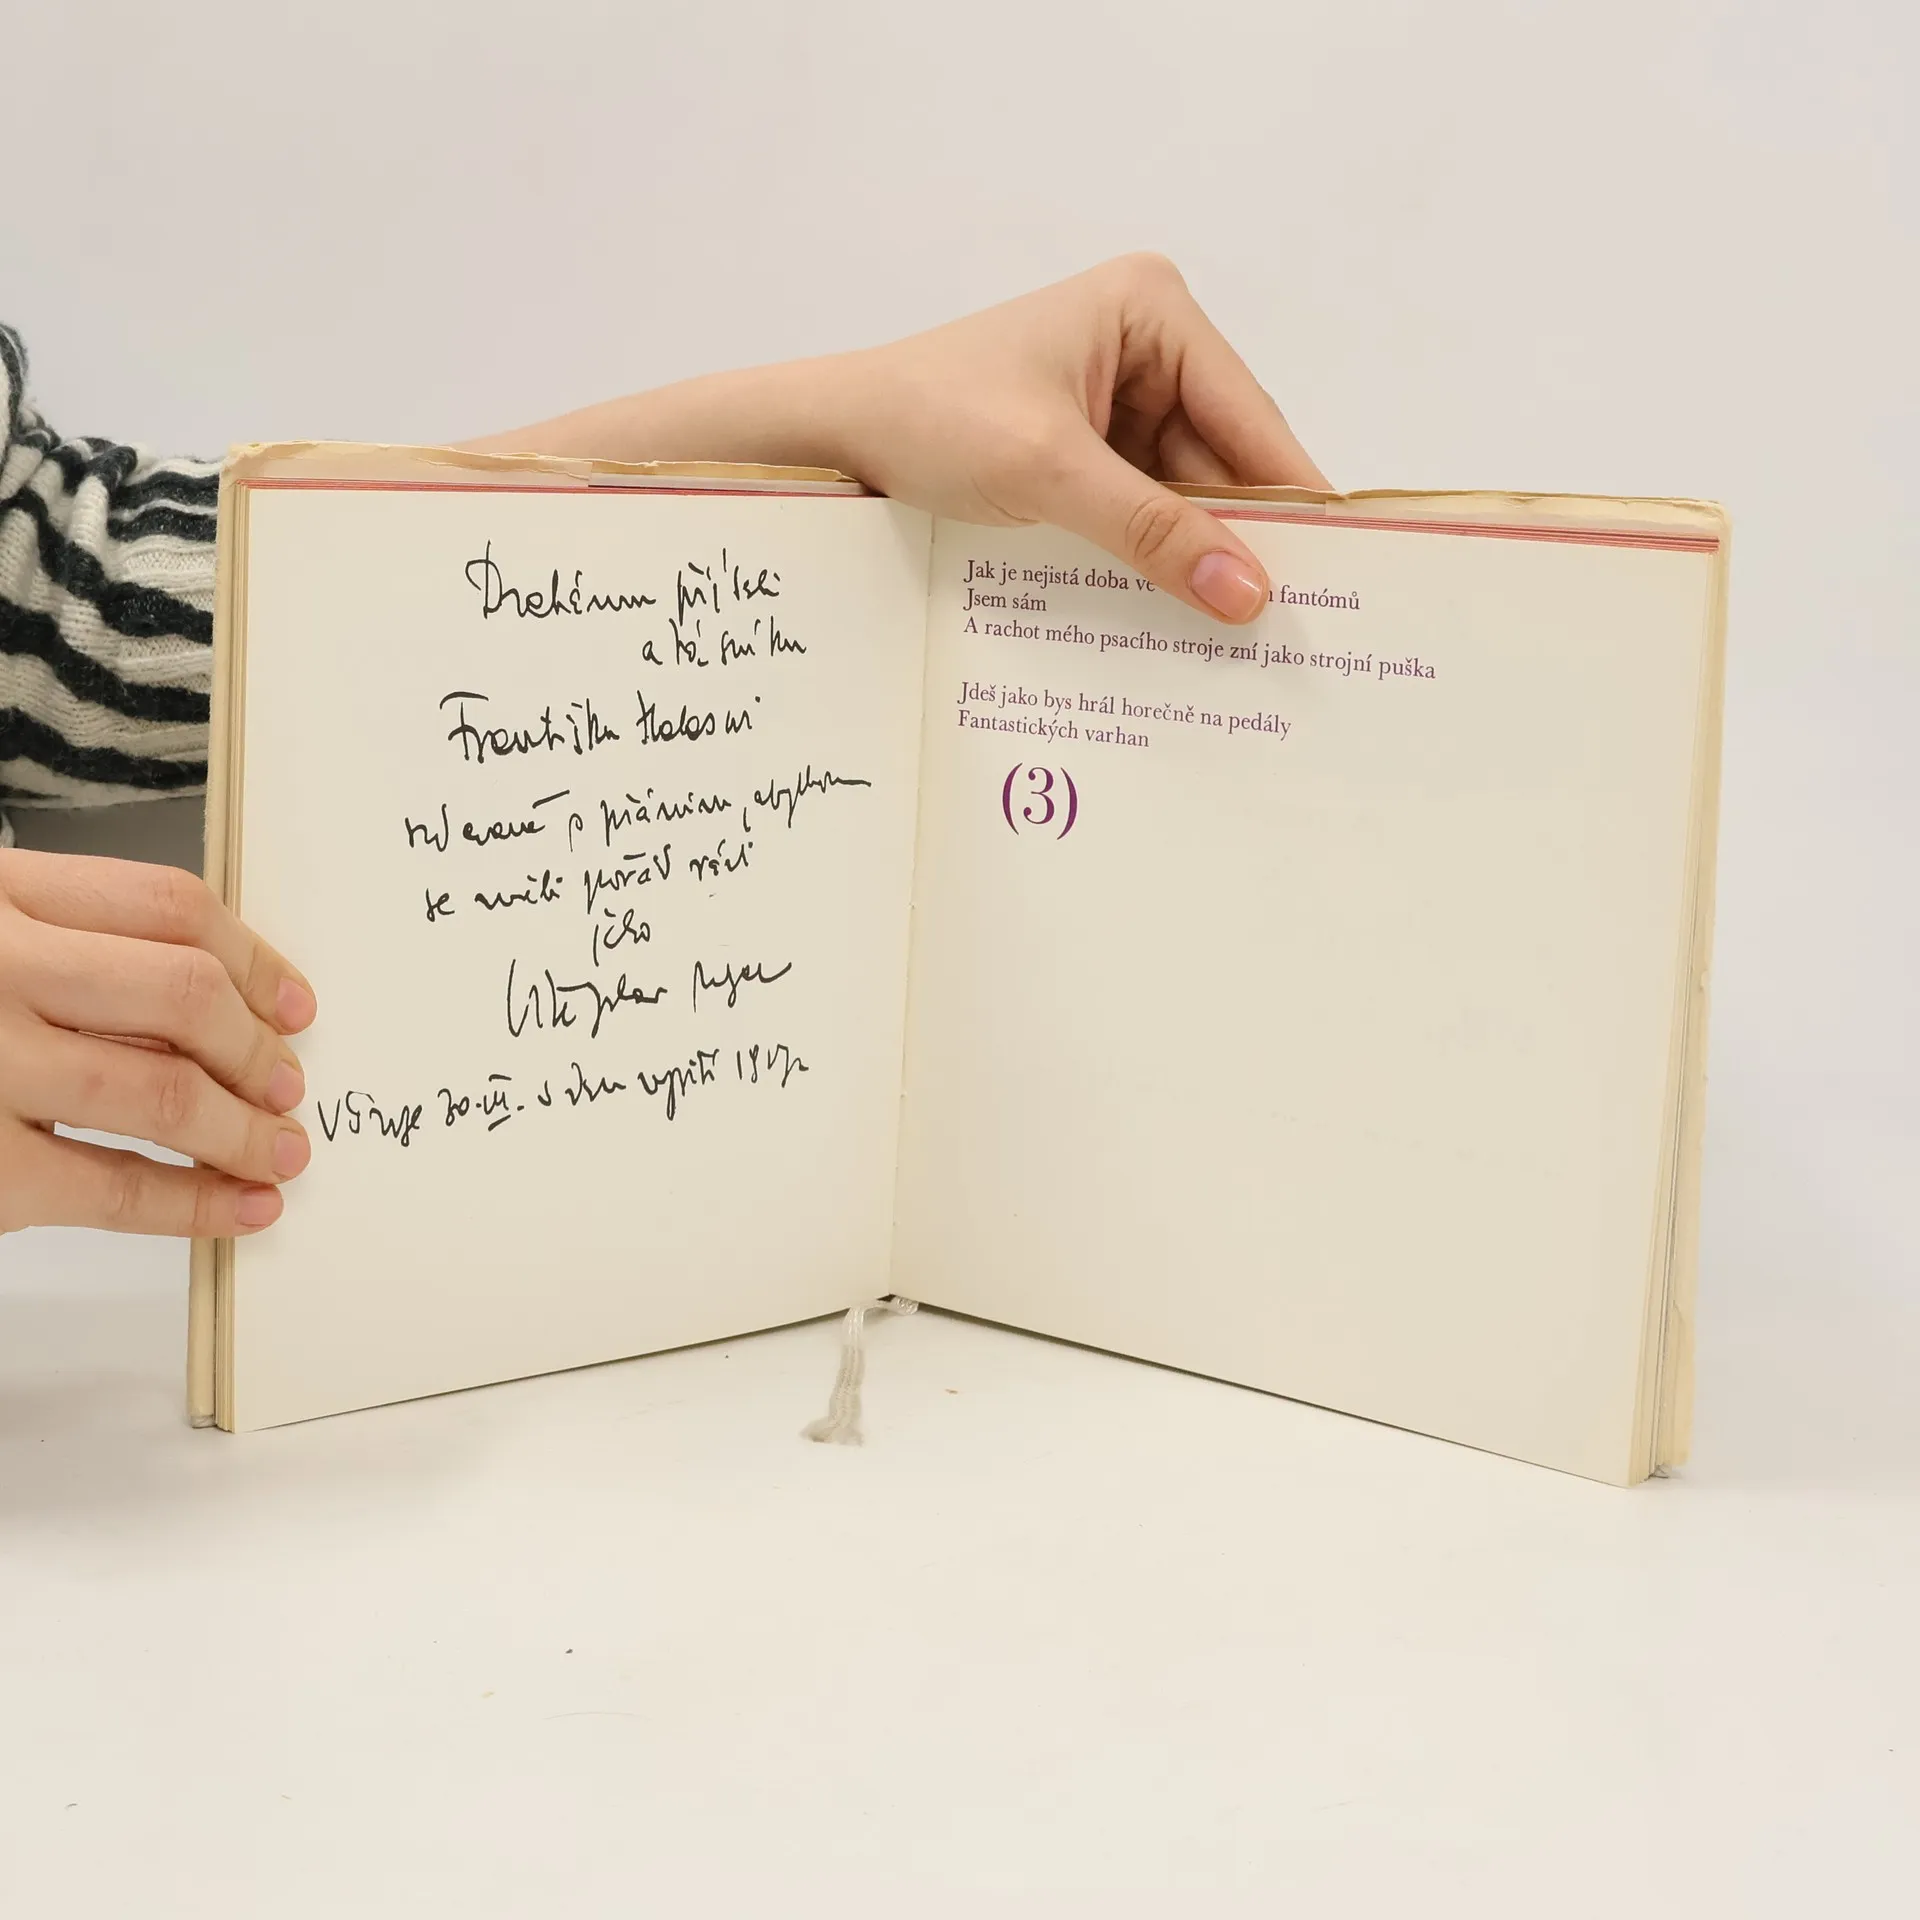 Drahému příteli
a básníku
Františku Halasovi
s přáním, abychom
se měli pořád rádi
jeho
Vítězslav Nezval
V Praze 30. III.
Jak je nejistá doba ve fantómů
Jsem sám
A rachot mého psacího stroje zní jako strojní puška
Jdeš jako bys hrál horečně na pedály
Fantastických varhan
(3)